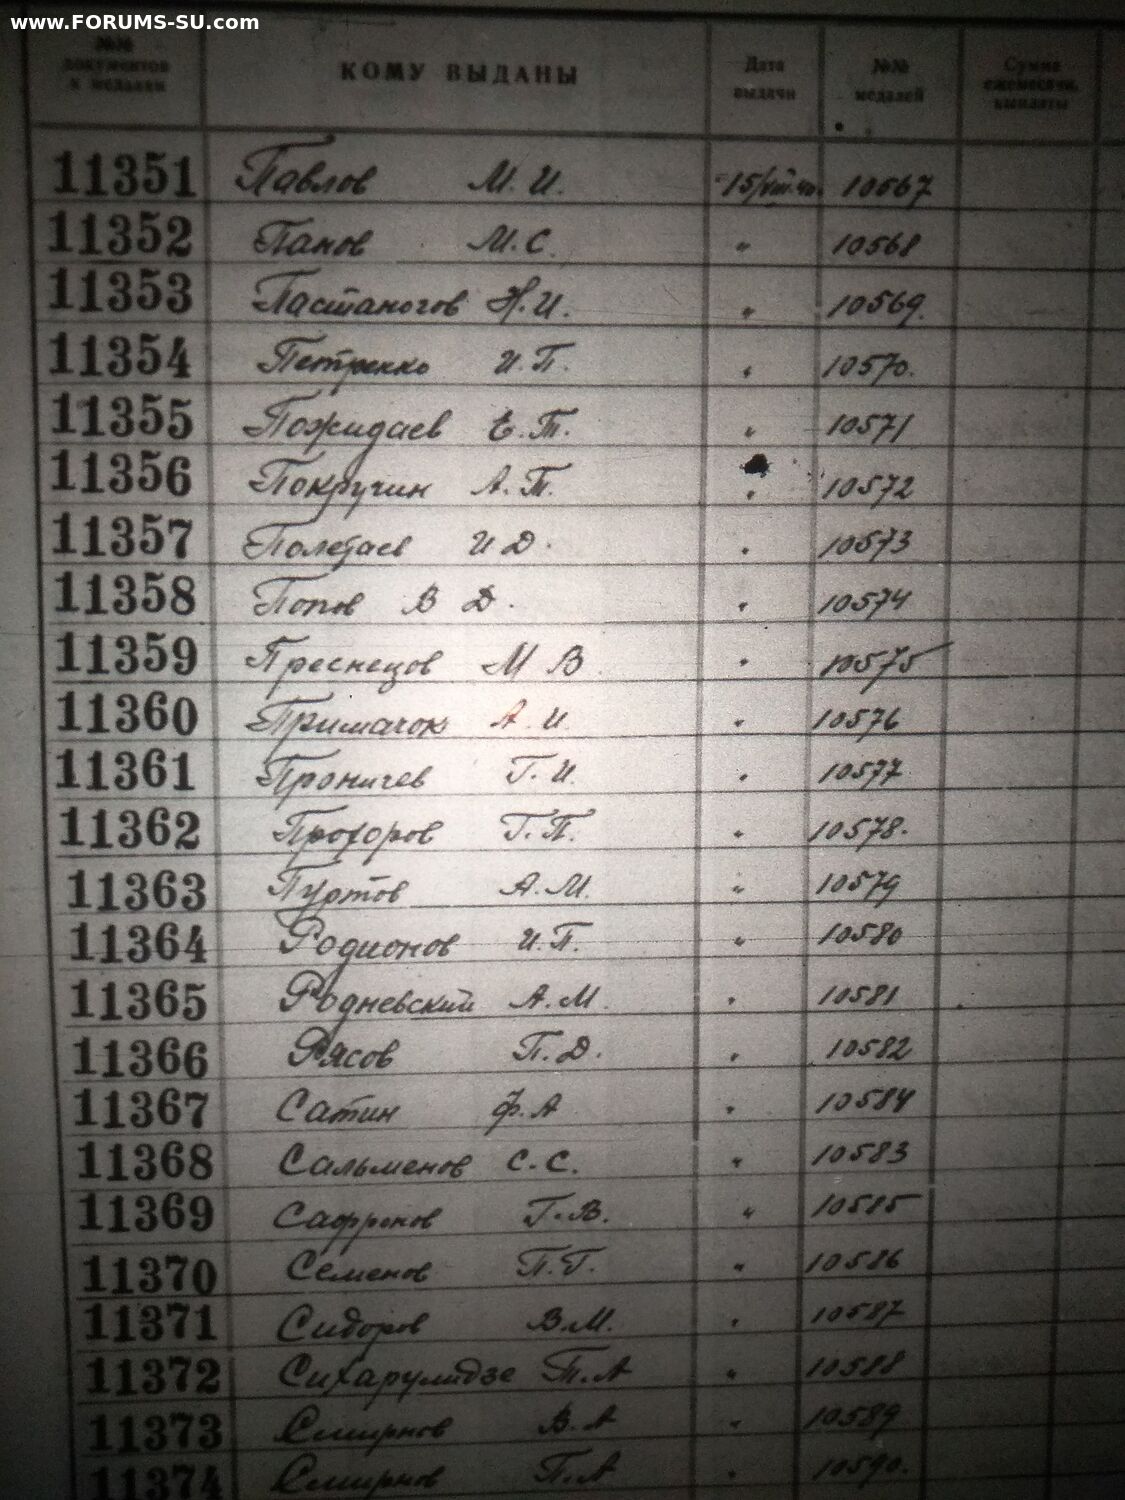 www.FORUMS-SU.com
№№ документов к медалям КОМУ ВЫДАНЫ Дата выдачи №№ медалей Сумма ежемесячн. выплаты
11351 Павлов М. И. 15/VIII.40. 10567
11352 Панов М. С. " 10568
11353 Пастаногов Н. И. " 10569.
11354 Петренко И. П. " 10570.
11355 Пожидаев Е. Т. " 10571
11356 Покручин А. Т. " 10572
11357 Полетаев И Д. " 10573
11358 Попов В Д. " 10574
11359 Преснецов М В " 10575
11360 Примачок А. И. " 10576
11361 Проничев Г. И. " 10577
11362 Прохоров Г. П. " 10578.
11363 Пуртов А. М. " 10579
11364 Родионов И. П. " 10580
11365 Родневский А. М. " 10581
11366 Рясов П. Д. " 10582
11367 Сатин Ф. А " 10584
11368 Сальменов С. С. " 10583
11369 Сафронов Г. В. " 10585
11370 Семенов П. Г. " 10586
11371 Сидоров В. М. " 10587
11372 Сихарулидзе П. А " 10588
11373 Смирнов В. А " 10589
11374 Смирнов П. А " 10590.